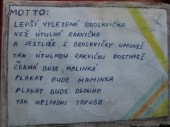 MOTTO:
LEPŠÍ VYLEZENÁ BROSKVIČKA
NEŽ ÚTULNÁ RAKVIČKA
A JESTLIŽE S BROSKVIČKY UPADNEŠ
TAK ÚTULNOU RAKVIČKU DOSTANEŠ
ČERNÁ BUDE, MALINKÁ
PLAKAT BUDE MAMINKA
PLAKAT BUDE DLOUHO
TAK NESPADNI